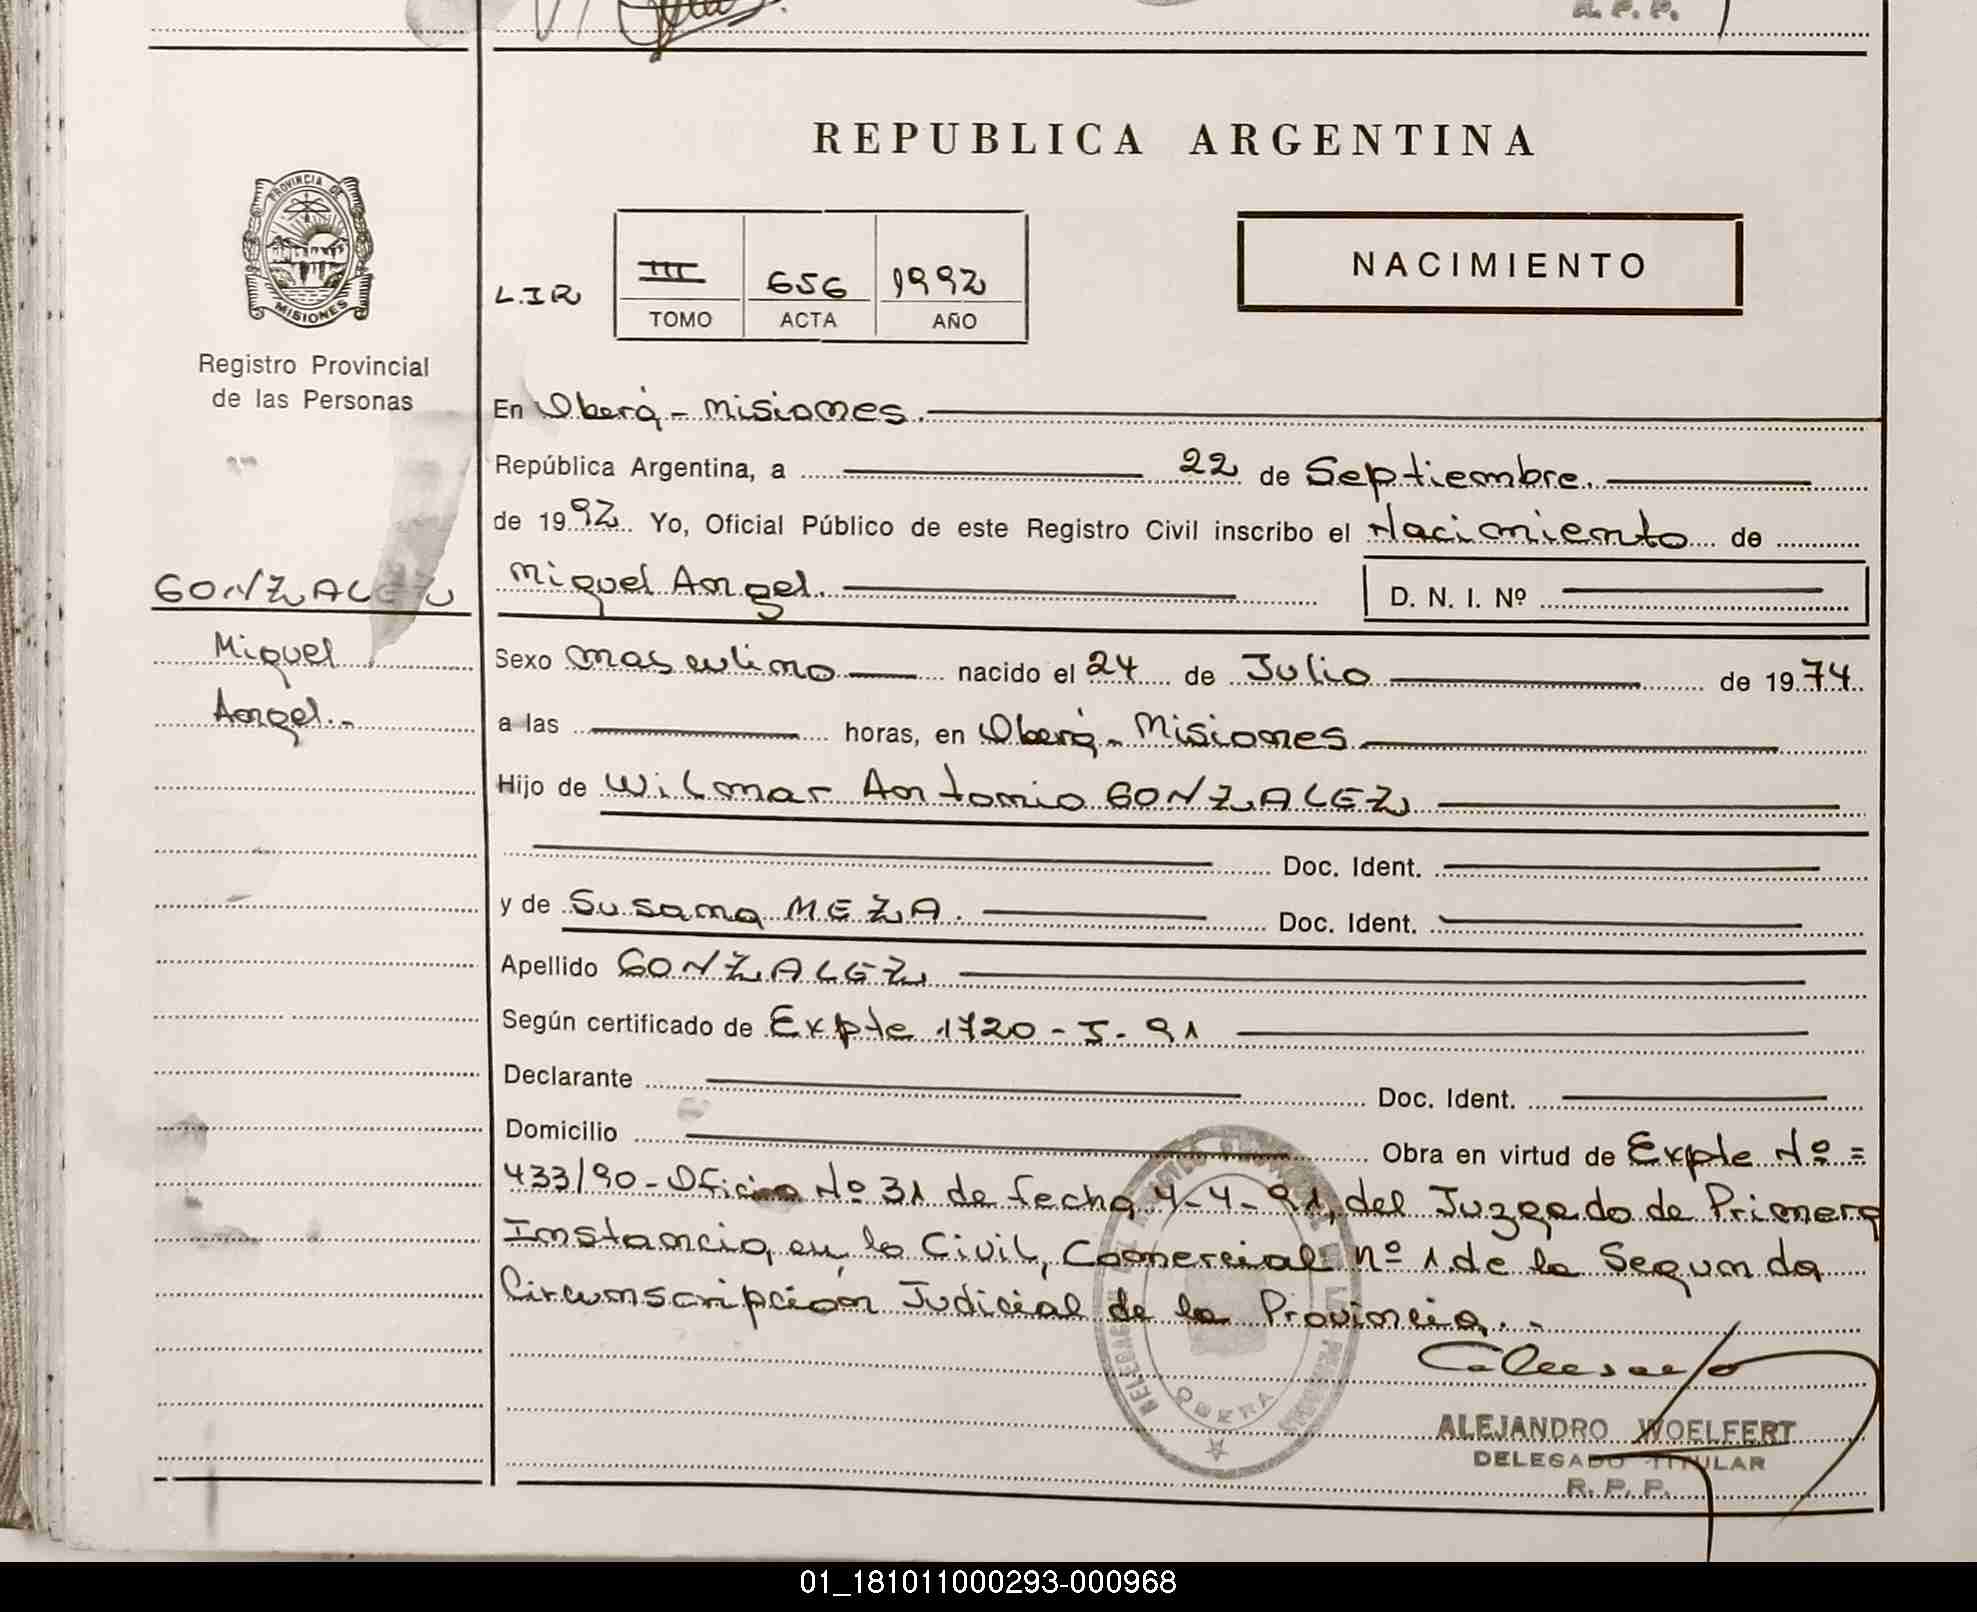 R. P. P.
REPUBLICA ARGENTINA
PROVINCIA DE
MISIONES
Registro Provincial
de las Personas
L.I.R
III 656 1992
TOMO ACTA AÑO
NACIMIENTO
En Oberá - Misiones.
República Argentina, a 22 de Septiembre.
de 1992 Yo, Oficial Público de este Registro Civil inscribo el Nacimiento de
Miguel Angel. D. N. I. Nº
GONZALEZ
Miguel
Angel.-
Sexo masculino nacido el 24 de Julio de 1974
a las horas, en Oberá - Misiones
Hijo de Wilmar Antonio GONZALEZ
Doc. Ident.
y de Susana MEZA. Doc. Ident.
Apellido GONZALEZ
Según certificado de Expte 1720-I-91
Declarante Doc. Ident.
Domicilio Obra en virtud de Expte Nº =
433/90-Oficio Nº 31 de fecha 4-4-91, del Juzgado de Primera
Instancia en lo Civil, Comercial nº 1 de la Segunda
Circunscripción Judicial de la Provincia.-
OBERA
ALEJANDRO WOELFERT
DELEGADO TITULAR
R. P. P.
01_181011000293-000968